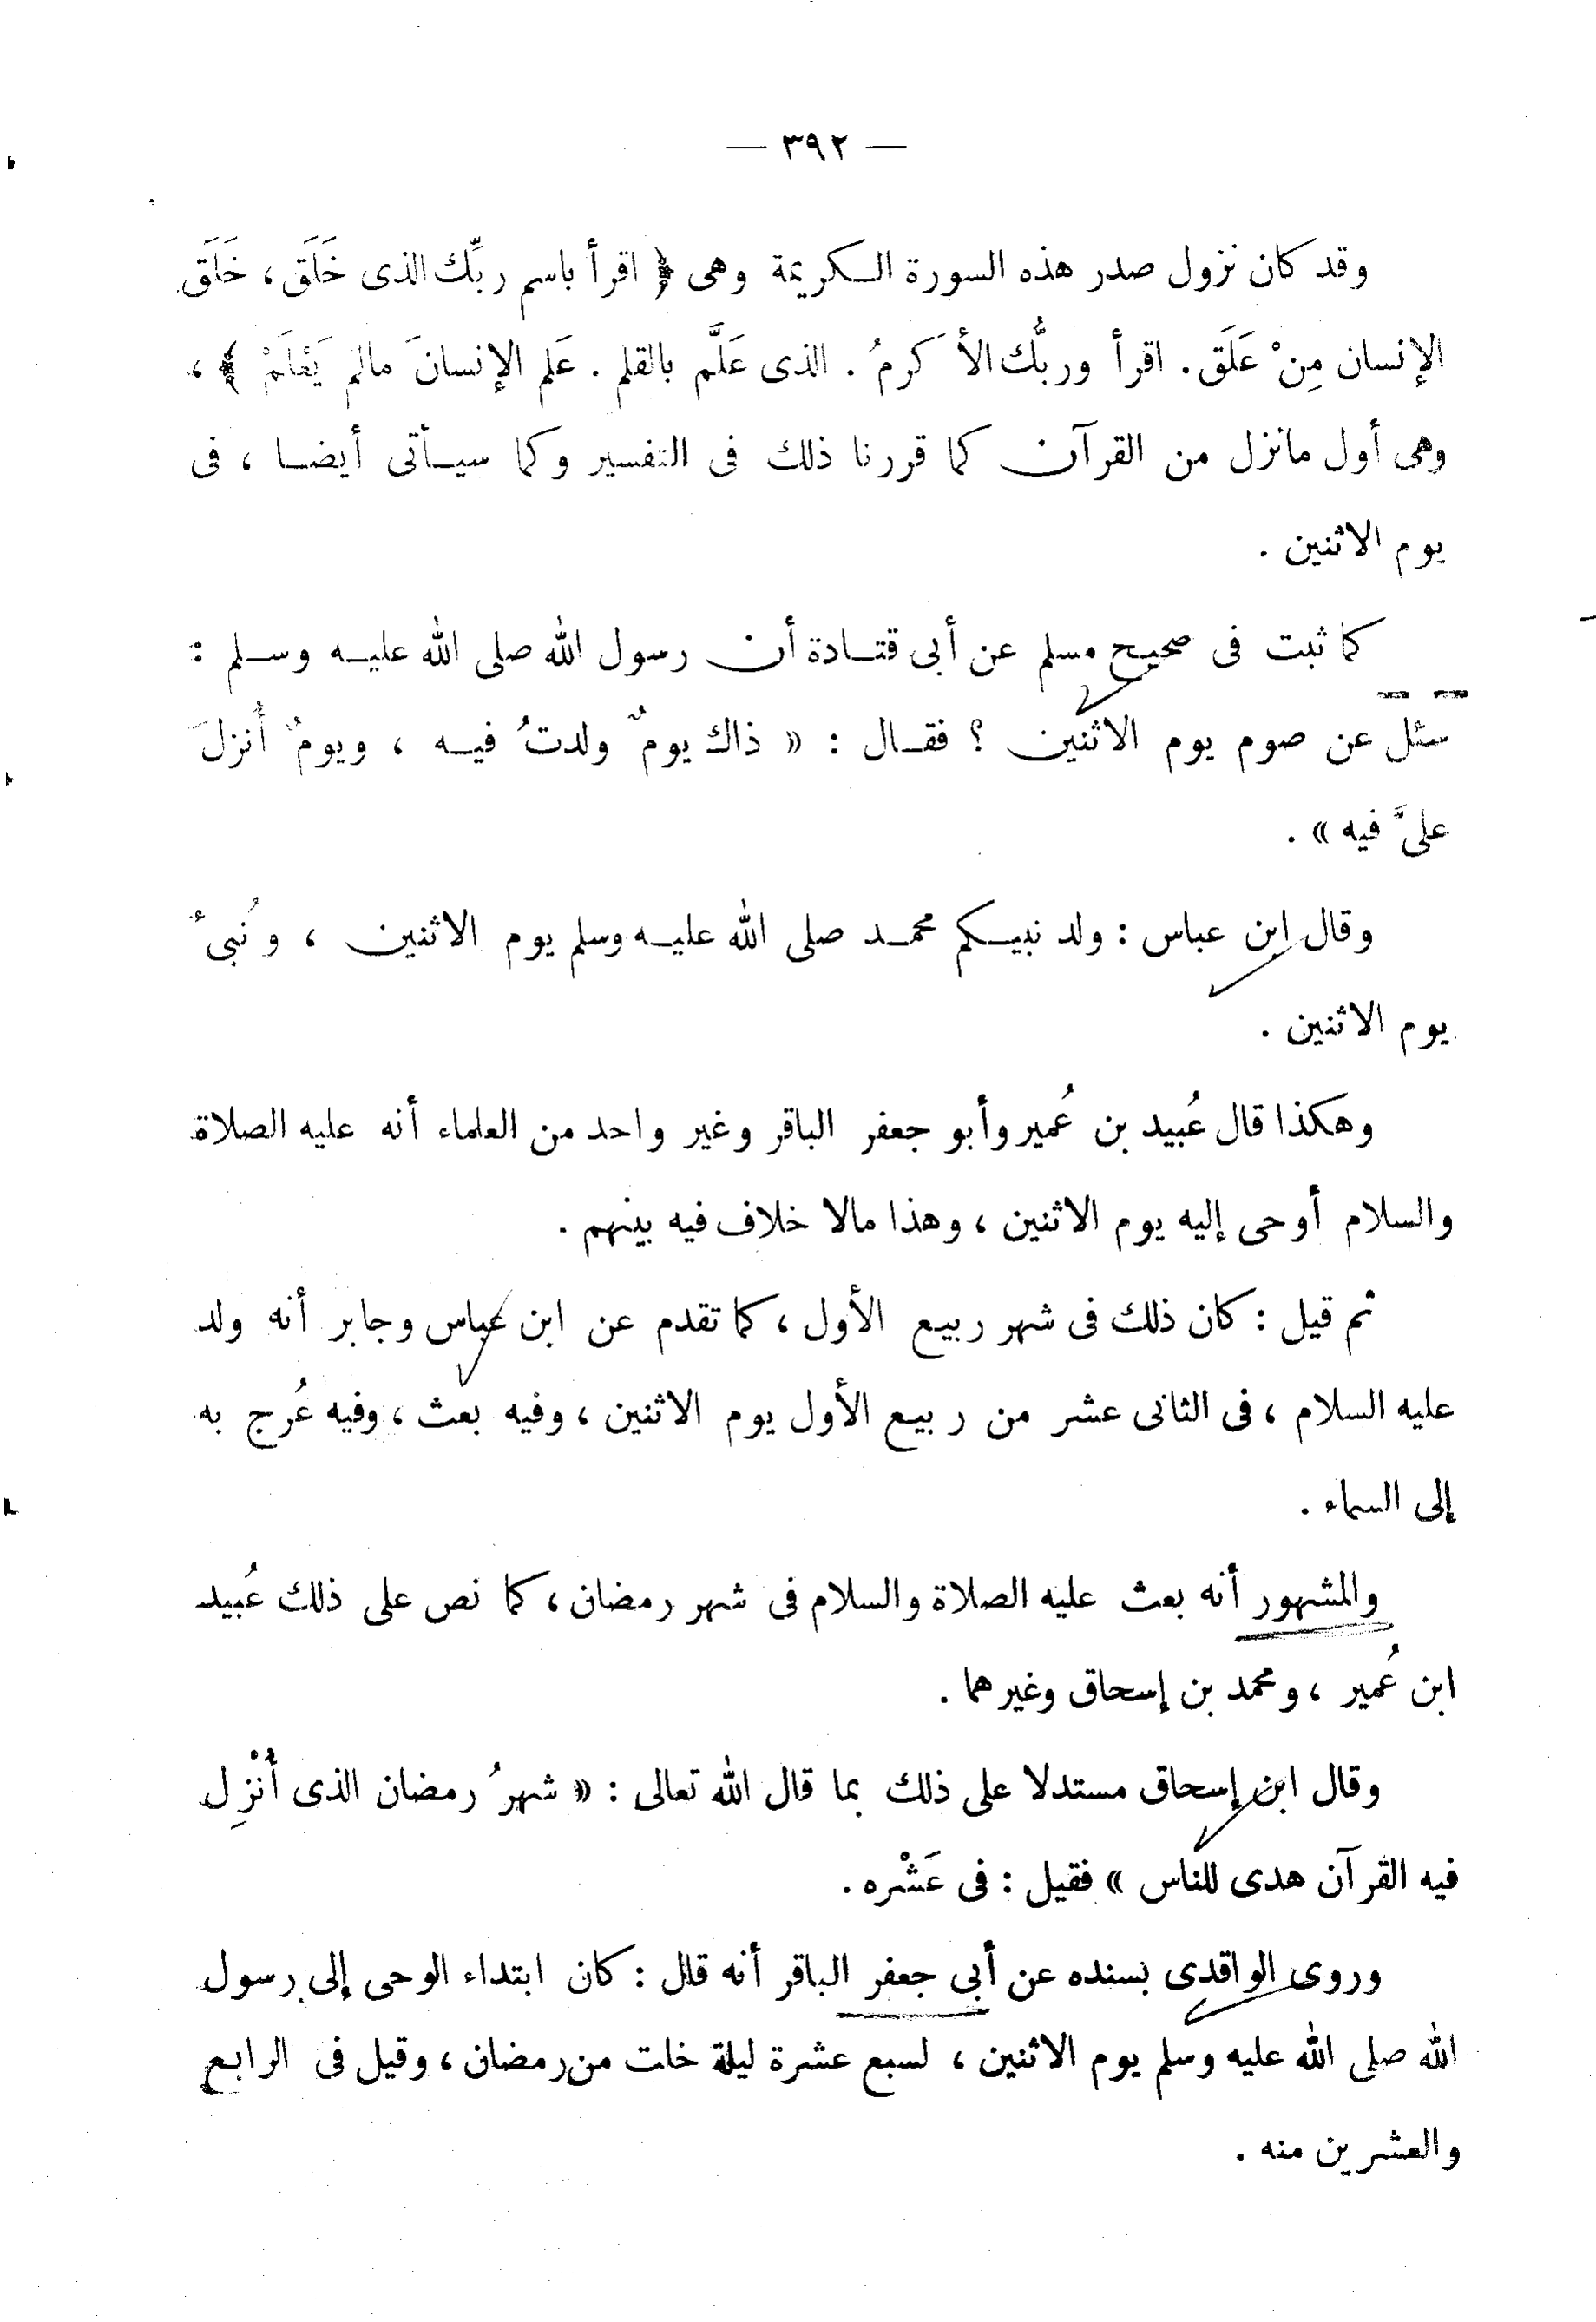 — ٣٩٢ —
وقد كان نزول صدر هذه السورة الكريمة وهى ﴿ اقرأ باسم ربِّك الذى خَلَقَ، خَلَقَ
الإنسان مِنْ عَلَق. اقرأ وربُّك الأَكرمُ . الذى عَلَّم بالقلم . عَلم الإنسانَ مالم يَعْلَمْ ﴾ ،
وهى أول مانزل من القرآن كما قررنا ذلك فى التفسير وكما سيأتى أيضا ، فى
يوم الاثنين .
كما ثبت فى صحيح مسلم عن أبى قتادة أن رسول الله صلى الله عليه وسلم :
سئل عن صوم يوم الاثنين ؟ فقال : « ذاك يومٌ ولدتُ فيه ، ويومٌ أُنزلَ
علىَّ فيه » .
وقال ابن عباس : ولد نبيكم محمد صلى الله عليه وسلم يوم الاثنين ، ونُبىءُ
يوم الاثنين .
وهكذا قال عُبيد بن عُمير وأبو جعفر الباقر وغير واحد من العلماء أنه عليه الصلاة
والسلام أوحى إليه يوم الاثنين ، وهذا مالا خلاف فيه بينهم .
ثم قيل : كان ذلك فى شهر ربيع الأول ، كما تقدم عن ابن عباس وجابر أنه ولد
عليه السلام ، فى الثانى عشر من ربيع الأول يوم الاثنين ، وفيه بعث ، وفيه عُرج به
إلى السماء .
والمشهور أنه بعث عليه الصلاة والسلام فى شهر رمضان ، كما نص على ذلك عُبيد
ابن عُمير ، ومحمد بن إسحاق وغيرهما .
وقال ابن إسحاق مستدلا على ذلك بما قال الله تعالى : « شهرُ رمضان الذى أُنْزِل
فيه القرآن هدى للناس » فقيل : فى عَشْره .
وروى الواقدى بسنده عن أبى جعفر الباقر أنه قال : كان ابتداء الوحى إلى رسول
الله صلى الله عليه وسلم يوم الاثنين ، لسبع عشرة ليلة خلت من رمضان ، وقيل فى الرابع
والعشرين منه .